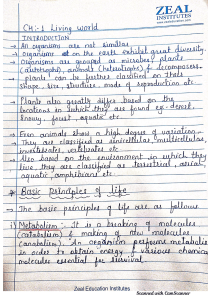 ZEAL
INSTITUTES
CH:-1 Living world
INTRODUCTION
→ All organisms are not similar
→ Organisms on the earth exhibit great diversity.
→ Organisms are grouped as microbes, plants
(autotrophs), animals (heterotrophs) & decomposers.
→ plants can be further classified on their
shape, size, structure, mode of reproduction etc
→ Plants also greatly differ based on the
locations in which they are found eg desert,
heavy, forest, aquatic etc
→ Even animals show a high degree of variation.
→ They are classified as unicellular, multicellular,
invertebrates, vertebrates etc
→ Also based on the environment in which they
live they are classified as terrestrial, aerial,
aquatic, amphibians etc
Basic Principles of life
→ The basic principles of life are as follows
i) Metabolism:- It is a breaking of molecules
(catabolism) & making of new molecules
(anabolism). An organism performs metabolism
in order to obtain energy & various chemical
molecules essential for survival
Zeal Education Institutes
Scanned with CamScanner